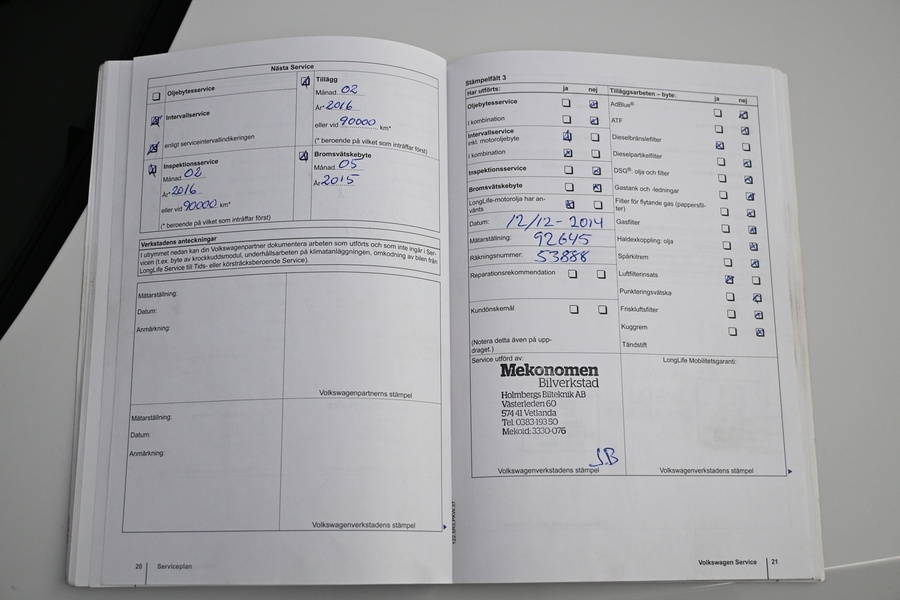 Nästa Service
Oljebytesservice
Intervallservice
enligt serviceintervallindikeringen
Inspektionsservice
Månad 02
År 2016
eller vid 90000 km*
(* beroende på vilket som inträffar först)
Tillägg
Månad 02
År 2016
eller vid 90000 km*
(* beroende på vilket som inträffar först)
Bromsvätskebyte
Månad 05
År 2015
Verkstadens anteckningar
I utrymmet nedan kan din Volkswagenpartner dokumentera arbeten som utförts och som inte ingår i Ser-
vicen (t.ex. byte av krockkuddsmodul, underhållsarbeten på klimatanläggningen, omkodning av bilen från
LongLife Service till Tids- eller körsträcksberoende Service).
Mätarställning:
Datum:
Anmärkning:
Volkswagenpartnerns stämpel
Mätarställning:
Datum:
Anmärkning:
Volkswagenverkstadens stämpel
20 Serviceplan
Stämpelfält 3
Har utförts: ja nej
Oljebytesservice
I kombination
Intervallservice
inkl. motoroljebyte
I kombination
Inspektionsservice
Bromsvätskebyte
LongLife-motorolja har an-
vänts
Datum: 12/12-2014
Mätarställning: 92645
Räkningsnummer: 53888
Reparationsrekommendation
Kundönskemål
(Notera detta även på upp-
draget.)
Tilläggsarbeten – byte: ja nej
AdBlue®
ATF
Dieselbränslefilter
Dieselpartikelfilter
DSG®: olja och filter
Gastank och -ledningar
Filter för flytande gas (pappersfil-
ter)
Gasfilter
Haldexkoppling: olja
Spårkilrem
Luftfilterinsats
Punkteringsvätska
Friskluftsfilter
Kuggrem
Tändstift
Service utförd av:
Mekonomen
Bilverkstad
Holmbergs Bilteknik AB
Västerleden 60
574 41 Vetlanda
Tel: 0383-193 50
Mekoid: 3330-076
JB
Volkswagenverkstadens stämpel
LongLife Mobilitetsgaranti:
Volkswagenverkstadens stämpel
Volkswagen Service 21